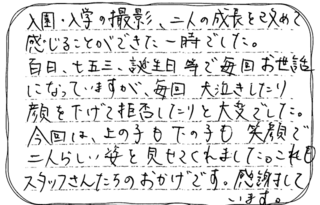 入園・入学の撮影、二人の成長を改めて
感じることができた一時でした。
百日、七五三、誕生日等で毎回お世話
になっていますが、毎回 大泣きしたり
顔を下げて拒否したりと大変でした。
今回は、上の子も下の子も 笑顔で
二人らしい姿を見せてくれました。これも
スタッフさんたちのおかげです。感謝して
います。